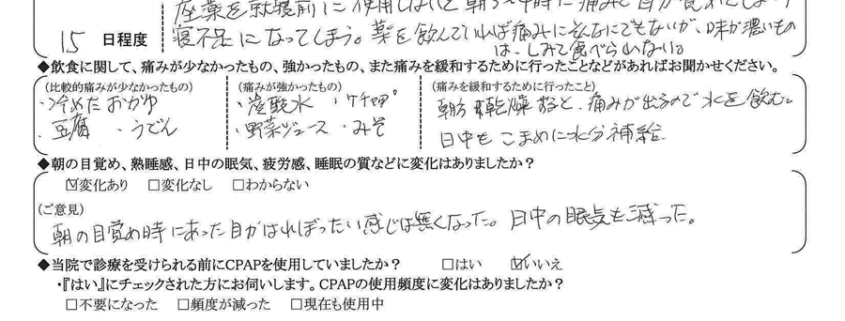 座薬を就寝前に使用しないと朝
15 日程度
寝不足になってしまう。薬を飲んでいれば痛みはそんなにでもないが、味が濃いもの
は、しみて食べられない。
◆飲食に関して、痛みが少なかったもの、強かったもの、また痛みを緩和するために行ったことなどがあればお聞かせください。
(比較的痛みが少なかったもの)
・冷めたおかゆ
・豆腐 ・うどん
(痛みが強かったもの)
・炭酸水 ・ケチャップ
・野菜ジュース ・みそ
(痛みを緩和するために行ったこと)
朝方乾燥すると、痛みが出るので水を飲む。
日中もこまめに水分補給
◆朝の目覚め、熟睡感、日中の眠気、疲労感、睡眠の質などに変化はありましたか?
☑変化あり □変化なし □わからない
(ご意見)
朝の目覚め時にあった目がはれぼったい感じは無くなった。日中の眠気も減った。
◆当院で診療を受けられる前にCPAPを使用していましたか? □はい ☑いいえ
・『はい』にチェックされた方にお伺いします。CPAPの使用頻度に変化はありましたか?
□不要になった □頻度が減った □現在も使用中